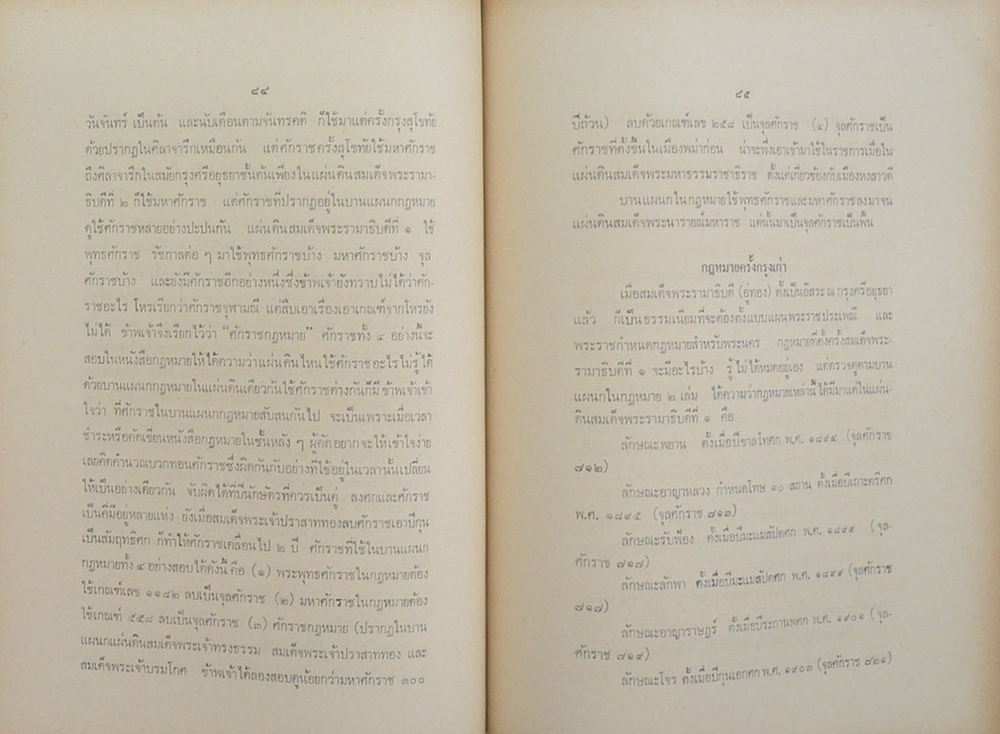 ๘๔
วันจันทร์ เป็นต้น และนับเดือนตามจันทรคติ ก็ใช้มาแต่ครั้งกรุงสุโขทัย
ด้วยปรากฏในศิลาจารึกเหมือนกัน แต่ศักราชครั้งสุโขทัยใช้มหาศักราช
ถึงศิลาจารึกในสมัยกรุงศรีอยุธยาชั้นต้นเพียงในแผ่นดินสมเด็จพระรามา-
ธิบดีที่ ๒ ก็ใช้มหาศักราช แต่ศักราชที่ปรากฏอยู่ในบานแผนกกฎหมาย
ดูใช้ศักราชหลายอย่างปะปนกัน แผ่นดินสมเด็จพระรามาธิบดีที่ ๑ ใช้
พุทธศักราช รัชกาลต่อ ๆ มาใช้พุทธศักราชบ้าง มหาศักราชบ้าง จุล
ศักราชบ้าง และยังมีศักราชอีกอย่างหนึ่งซึ่งข้าพเจ้ายังทราบไม่ได้ว่าศัก-
ราชอะไร โหรเรียกว่าศักราชจุฬามณี แต่สืบเอาเรื่องเอาเกณฑ์จากโหรยัง
ไม่ได้ ข้าพเจ้าจึงเรียกไว้ว่า "ศักราชกฎหมาย" ศักราชทั้ง ๔ อย่างนี้จะ
สอบในหนังสือกฎหมายให้ได้ความว่าแผ่นดินไหนใช้ศักราชอะไรไม่รู้ได้
ด้วยบานแผนกกฎหมายในแผ่นดินเดียวกันใช้ศักราชต่างกันก็มี ข้าพเจ้าเข้า
ใจว่า ที่ศักราชในบานแผนกกฎหมายสับสนกันไป จะเป็นเพราะเมื่อเวลา
ชำระหรือคัดเขียนหนังสือกฎหมายในชั้นหลัง ๆ ผู้คัดอยากจะให้เข้าใจง่าย
เลยคิดคำนวณบวกทอนศักราชซึ่งผิดกันกับอย่างที่ใช้อยู่ในเวลานั้นเปลี่ยน
ให้เป็นอย่างเดียวกัน จับผิดได้ที่ปีนักษัตรที่ควรเป็นคู่ ลงศกและศักราช
เป็นคี่มีอยู่หลายแห่ง ยังเมื่อสมเด็จพระเจ้าปราสาททองลบศักราชเอาปีกุน
เป็นสัมฤทธิศก ก็ทำให้ศักราชเคลื่อนไป ๒ ปี ศักราชที่ใช้ในบานแผนก
กฎหมายทั้ง ๔ อย่างสอบได้ดังนี้ คือ (๑) พระพุทธศักราชในกฎหมายต้อง
ใช้เกณฑ์เลข ๑๑๘๒ ลบเป็นจุลศักราช (๒) มหาศักราชในกฎหมายต้อง
ใช้เกณฑ์ ๕๕๘ ลบเป็นจุลศักราช (๓) ศักราชกฎหมาย (ปรากฏในบาน
แผนกแผ่นดินสมเด็จพระเจ้าทรงธรรม สมเด็จพระเจ้าปราสาททอง และ
สมเด็จพระเจ้าบรมโกศ ข้าพเจ้าได้ลองสอบดูน้อยกว่ามหาศักราช ๓๐๐
๘๕
ปีถ้วน) ลบด้วยเกณฑ์เลข ๒๕๘ เป็นจุลศักราช (๔) จุลศักราชเป็น
ศักราชที่ตั้งขึ้นในเมืองพม่าก่อน น่าจะพึ่งเอาเข้ามาใช้ในราชการเมื่อใน
แผ่นดินสมเด็จพระมหาธรรมราชาธิราช ตั้งแต่เกี่ยวข้องกับเมืองหงสาวดี
บานแผนกในกฎหมายใช้พุทธศักราชและมหาศักราชลงมาจน
แผ่นดินสมเด็จพระนารายณ์มหาราช แต่นั้นมาเป็นจุลศักราชเป็นพื้น
กฎหมายครั้งกรุงเก่า
เมื่อสมเด็จพระรามาธิบดี (อู่ทอง) ตั้งเป็นอิสระ ณ กรุงศรีอยุธยา
แล้ว ก็เป็นธรรมเนียมที่จะต้องตั้งแบบแผนพระราชประเพณี และ
พระราชกำหนดกฎหมายสำหรับพระนคร กฎหมายที่ตั้งครั้งสมเด็จพระ-
รามาธิบดีที่ ๑ จะมีอะไรบ้าง รู้ไม่ได้หมดอยู่เอง แต่ตรวจดูตามบาน
แผนกในกฎหมาย ๒ เล่ม ได้ความว่ากฎหมายเหล่านี้ได้มีมาแต่ในแผ่น-
ดินสมเด็จพระรามาธิบดีที่ ๑ คือ
ลักษณะพยาน ตั้งเมื่อปีขาลโทศก พ.ศ. ๑๘๙๔ (จุลศักราช
๗๑๒)
ลักษณะอาญาหลวง กำหนดโทษ ๑๐ สถาน ตั้งเมื่อปีเถาะตรีศก
พ.ศ. ๑๘๙๕ (จุลศักราช ๗๑๓)
ลักษณะรับฟ้อง ตั้งเมื่อปีมะแมสัปตศก พ.ศ. ๑๘๙๙ (จุล-
ศักราช ๗๑๗)
ลักษณะลักพา ตั้งเมื่อปีมะแมสัปตศก พ.ศ. ๑๘๙๙ (จุลศักราช
๗๑๗)
ลักษณะอาญาราษฎร์ ตั้งเมื่อปีระกานพศก พ.ศ. ๑๙๐๑ (จุล-
ศักราช ๗๑๙)
ลักษณะโจร ตั้งเมื่อปีกุนเอกศก พ.ศ. ๑๙๐๓ (จุลศักราช ๗๒๑)